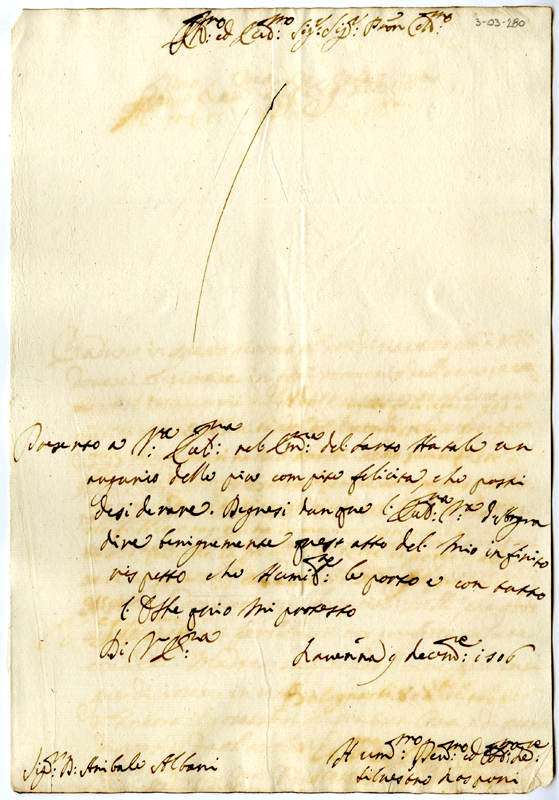 3-03-280
Ill:mo ed Ecc:mo Sig:r Sig:r Pron Col:mo
Presento a V:ra Ecc:za nel del Santo Natale un
augurio delle piu compite felicita, che possi
desiderare. Degnesi dunque l' V:ra d'aggra
dire benignemente quest atto del mio infinito
rispetto che Humil:te le porto e con tutto
l' mi protesto
Di V:
Ravenna 9 decem:re 1706
Sig:r D: Anibale Albani
Humil:mo Dev:mo ed
Silvestro Rasponi